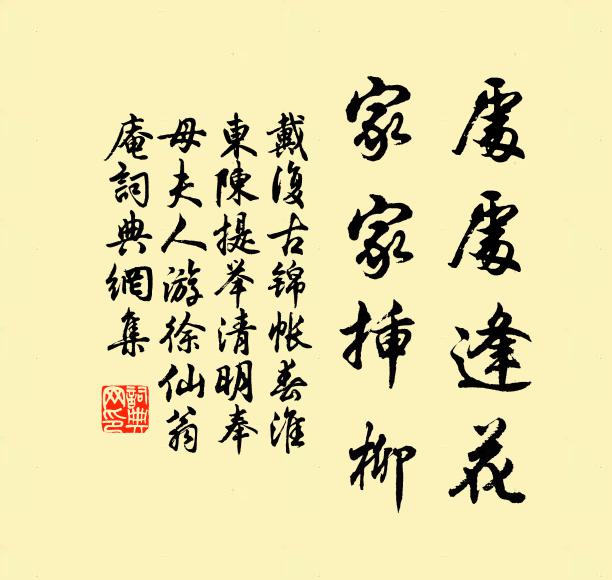 處處逢花
家家插柳
戴復古錦帐春淮
東陳提举清明奉
母夫人游徐仙翁
庵詞典網集
詞典网印